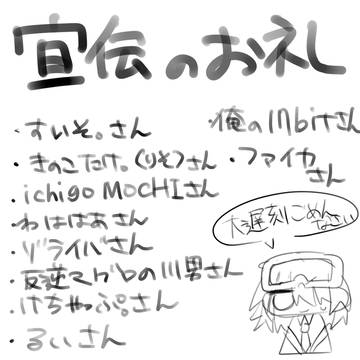 宣伝のお礼
・すいそ。さん
・きのこたけ。(りそ)さん
・ichigo MOCHIさん
・わははあさん
・ゾライバさん
・反逆マグロの川男さん
・けちゃっぷ。さん
・るいさん
・俺の17bitさん
・ファイカさん
大遅刻ごめんなさい